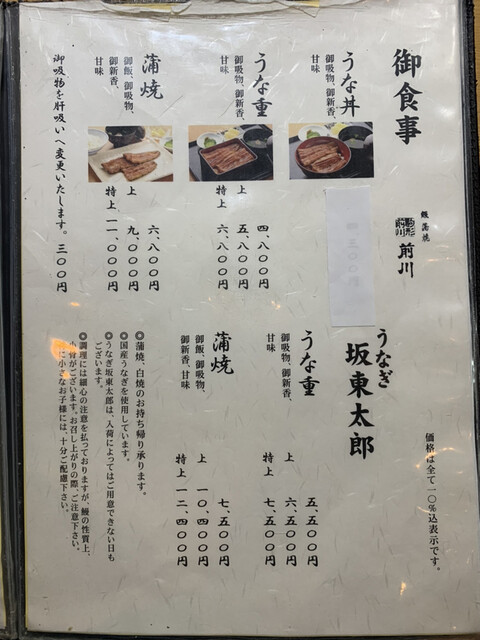 御食事
鰻蒲焼
駒形
前川
前川
うな丼
御吸物、御新香、
甘味
うな重
御吸物、御新香、
甘味
四、八〇〇円
上 五、八〇〇円
特上 六、八〇〇円
蒲焼
御飯、御吸物、
御新香、
甘味
六、八〇〇円
上 九、〇〇〇円
特上 一一、〇〇〇円
御吸物を肝吸いへ変更いたします。 三〇〇円
価格は全て一〇%込表示です。
うなぎ
坂東太郎
うな重
御吸物、御新香、
甘味
五、五〇〇円
上 六、五〇〇円
特上 七、五〇〇円
蒲焼
御飯、御吸物、
御新香、甘味
七、五〇〇円
上 一〇、四〇〇円
特上 一二、四〇〇円
◎蒲焼、白焼のお持ち帰り承ります。
◎国産うなぎを使用しています。
◎うなぎ坂東太郎は、入荷によってはご用意できない日も
ございます。
◎調理には細心の注意を払っておりますが、鰻の性質上、
小骨がございます。お召し上がりの際、ご注意下さい。
に小さなお子様には、十分ご配慮下さい。